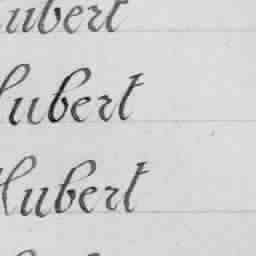 ubert
Hubert
Hubert